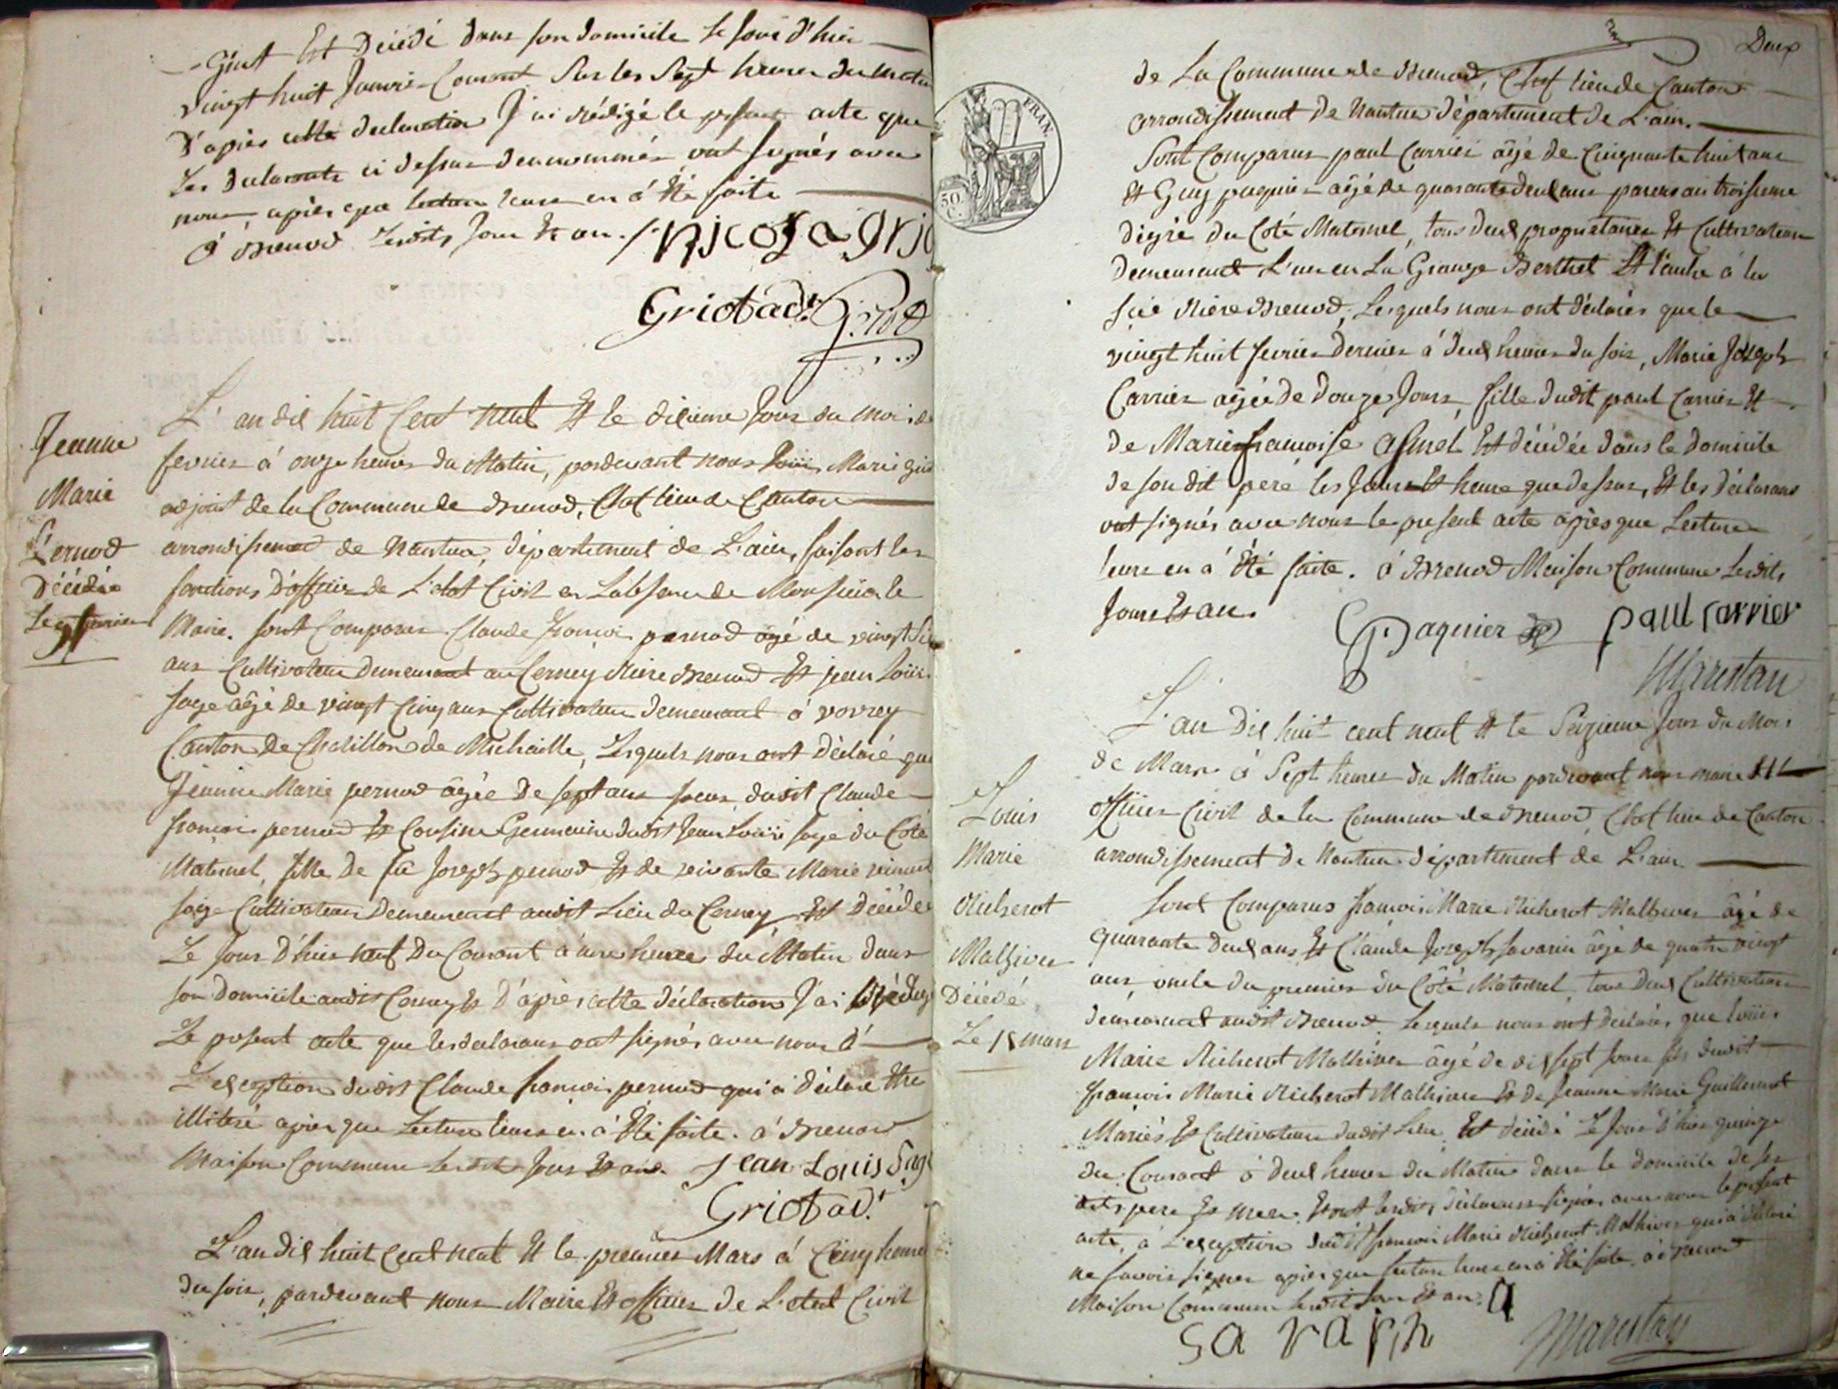 -Gint Est Décédé dans son domicile le jour d'hier
vingt huit Janvier Courant sur les Sept heures du matin
D'après cette declaration J'ai rédigé le present acte que
Les declarants ci dessus denommés ont signés avec
nous après que lecture leurs en a été faite
à Brenod Lesdits Jour Et an.
Griotadt.
Jeanne
Marie
Pernod
Décédée
Le 9 fevrier
L'an dix huit Cent neuf Et le dixieme Jour du mois de
fevrier à onze heures du Matin, pardevant nous Louis Marie
adjoint de la Commune de Brenod, Chef lieu de Canton
arrondissement de Nantua, département de L'ain, faisant les
fonctions D'officier de L'etat Civil en L'absence de Monsieur le
Maire. Sont Comparus Claude françois pernod âgé de vingt
ans Cultivateur Demeurant au Cerney Riere Brenod Et jean Louis
sage âgé de vingt Cinq ans Cultivateur demeurant à vovrey
Canton de Chatillon de Michaille, Lesquels nous ont Déclaré que
Jeanne Marie pernod âgée De sept ans soeur dudit Claude
françois pernod Et Cousine Germaine dudit Jean Louis sage du Coté
Maternel, fille De fû Joseph pernod Et de vivante Marie
sage Cultivateur Demeurant audit Lieu du Cerney Est Décédée
Le Jour D'hier neuf Du Courant à une heure du Matin dans
son Domicile audit Cerney Et D'après cette déclaration J'ai Rédigé
Le present acte que les declarans ont signés avec nous à
L'exception dudit Claude françois pernod qui a déclaré être
illiteré après que Lecture leurs en a été faite. à Brenod
Maison Commune lesdits Jour Et an. Jean Louis Sage
Griotadt.
L'an dix huit Cent neuf Et le premier Mars à Cinq heures
du soir, pardevant nous Maire Et officier de L'etat Civil
Deux
FRAN.
50
C.
de La Commune de Brenod, Chef lieu de Canton
arrondissement de Nantua département de L'ain.
Sont Comparus paul Carrier âgé de Cinquante huit ans
Et Guy paquier âgé de quarante deux ans parens au troisieme
dégré du Coté Maternel, tous deux propriétaires Et Cultivateurs
demeurant L'un en La Grange Berthet Et l'autre à la
scie Riere Brenod, Lesquels nous ont déclarés que le
vingt huit fevrier Dernier à deux heures du soir, Marie Joseph
Carrier âgée de Douze Jours, fille dudit paul Carrier Et
de Marie françoise Est décédée dans le domicile
de son dit pere les Jour Et heure que dessus, Et les déclarans
ont signés avec nous le present acte après que Lecture
leurs en a été faite. à Brenod Maison Commune Lesdits
Jour Et an.
G Paquier paul carrier
Maristan
Louis
Marie
Richerot
Mathieu
Décédé
Le 15 mars
L'an Dix huit cent neuf Et le Seizieme Jour du Mois
de Mars à Sept heures du Matin pardevant nous maire Et
officier Civil de la Commune de Brenod, Chef lieu de Canton
arrondissement de Nantua département de L'ain
Sont Comparus françois Marie Richerot Mathieu âgé de
quarante deux ans Et Claude Joseph savarin âgé de quatre vingt
ans, oncle du premier du Côté Maternel, tous deux Cultivateurs
demeurant audit Brenod. Lesquels nous ont déclarés que Louis
Marie Richerot Mathieu âgé de dix sept Jours fils dudit
françois Marie Richerot Mathieu Et de Jeanne Marie Guillermet
Mariés Et Cultivateurs dudit Lieu Est décédé Le Jour D'hier quinze
du Courant à deux heures du Matin dans le domicile de ses
dits pere Et mere. Et ont lesdits déclarans signés avec nous le present
acte, à L'exception dudit françois Marie Richerot Mathieu qui a déclaré
ne savoir signer après que lecture leurs en a été faite, à Brenod
Maison Commune lesdits Jour Et an.
savarin
Maristan